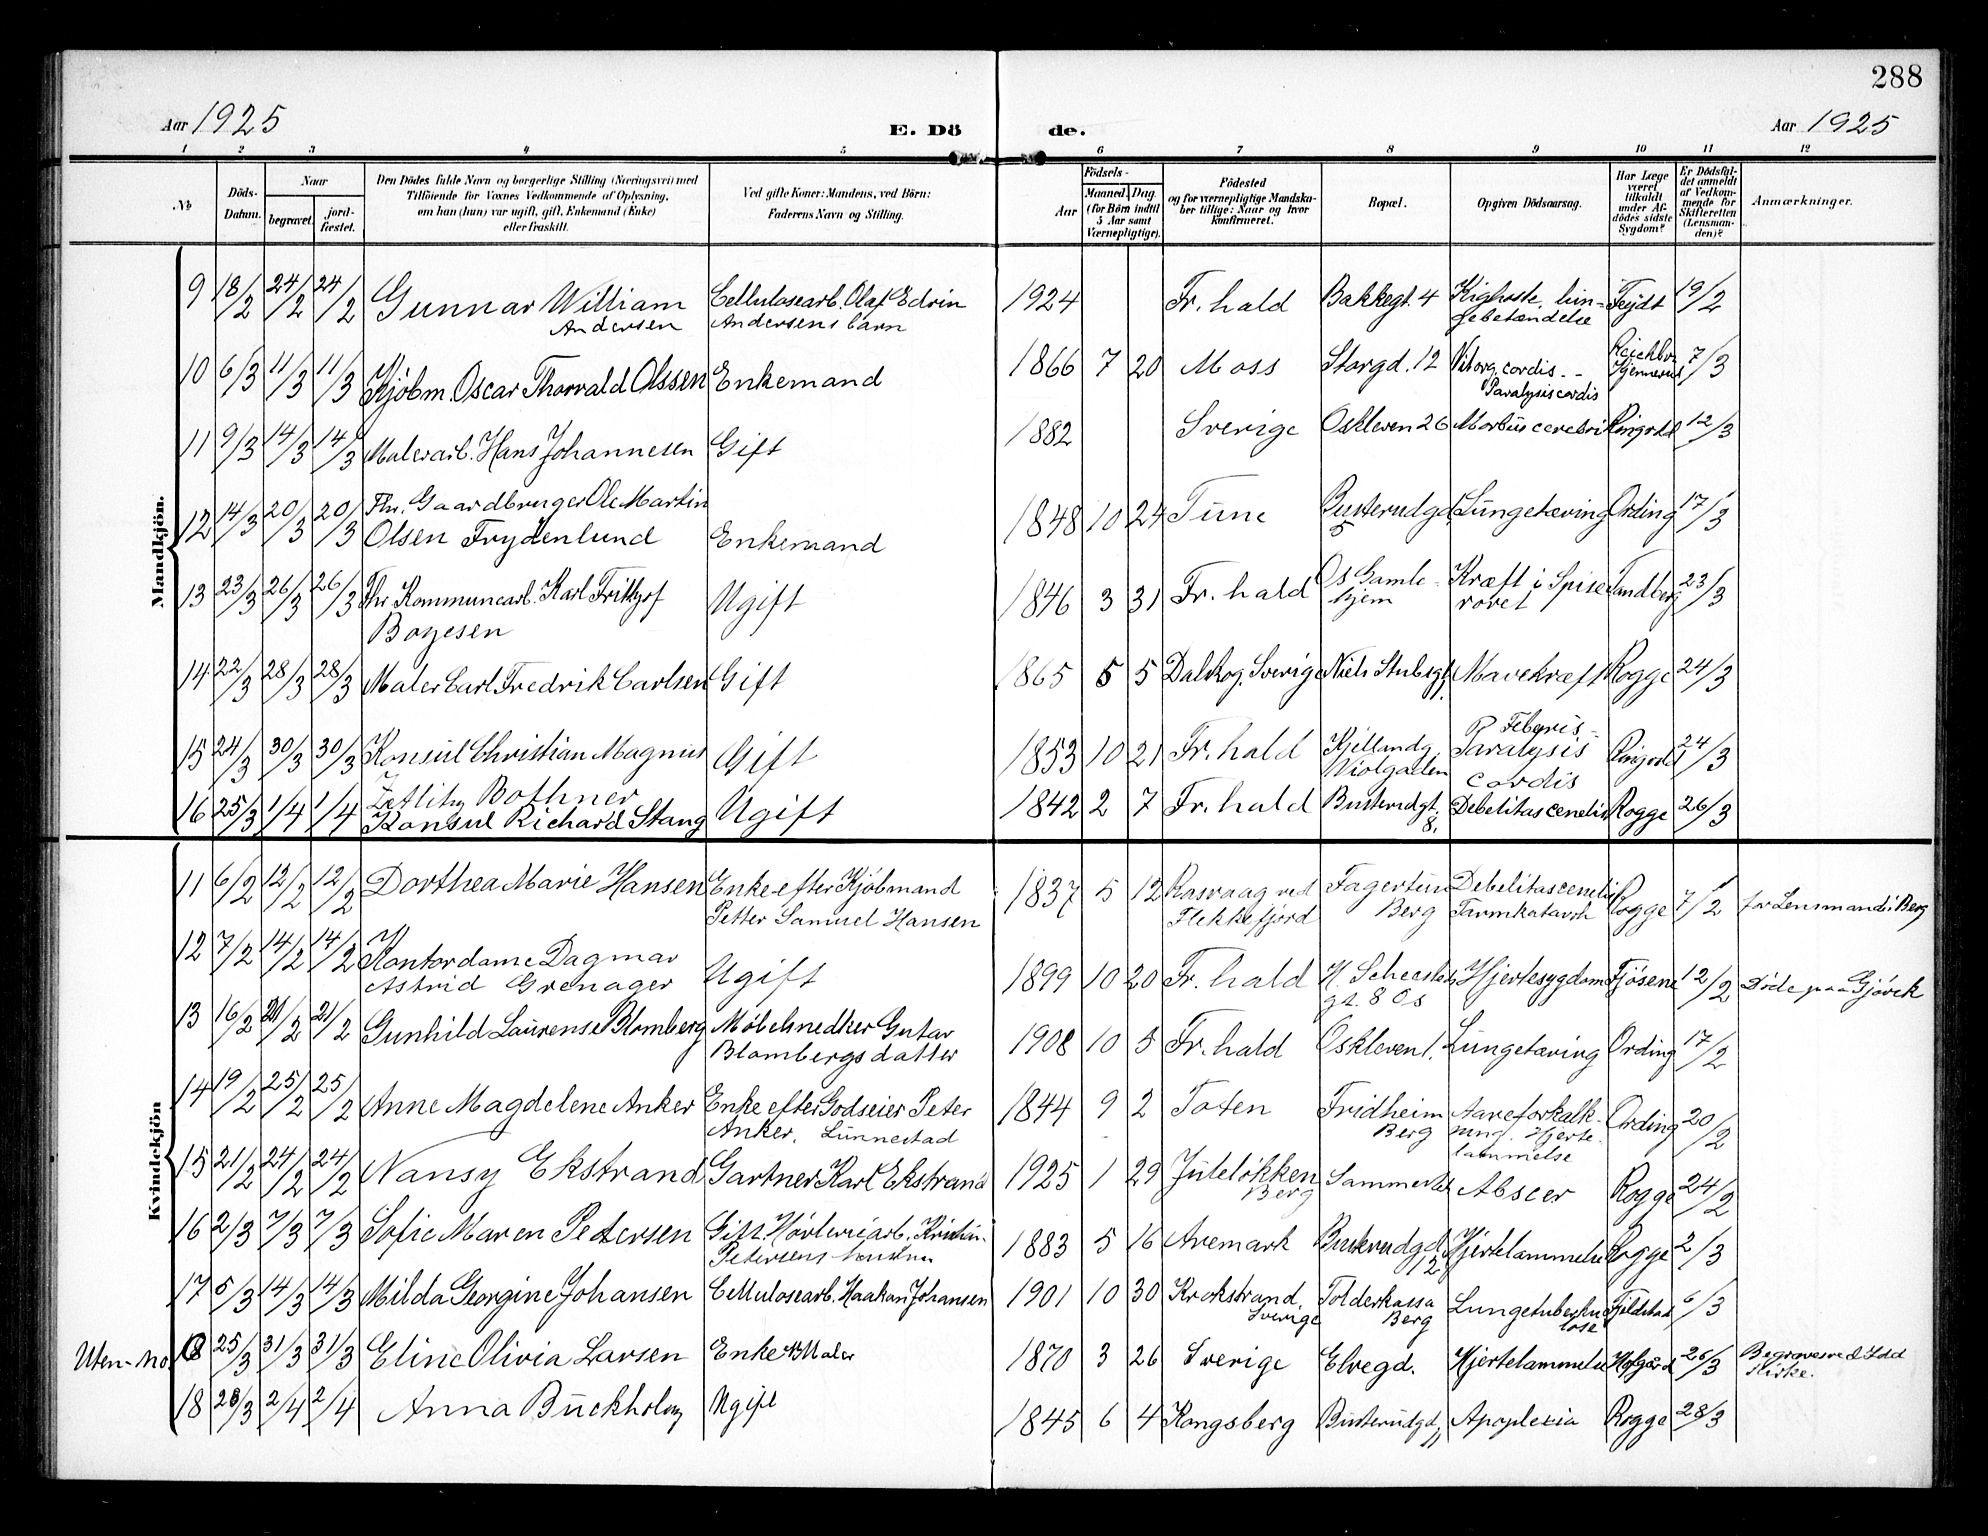 288
Aar 1925 E. Dö de. Aar 1925
1 2 3 4 5 6 7 8 9 10 11 12
№ Döds-Datum. Naar begravet. jordfæstet. Den Dödes fulde Navn og borgerlige Stilling (Næringsvei) med Tilföiende for Voxnes Vedkommende af Oplysning, om han (hun) var ugift, gift, Enkemand (Enke) eller fraskilt. Ved gifte Koner: Mandens, ved Börn: Faderens Navn og Stilling. Födsels- Aar Maaned. Dag. (for Börn indtil 5 Aar samt Værnepligtige). Födested og for værnepligtige Mandskaber tillige: Naar og hvor konfirmeret. Bopæl. Opgiven Dödsaarsag. Har Læge været tilkaldt under Afdödes sidste Sygdom? Er Dödsfaldet anmeldt af Vedkommende for Skifteretten (Lensmanden)? Anmærkninger.
Mandkjön.
9 18/2 24/2 24/2 Gunnar William Cellulosearb. Olaf Edvin 1924 Fr. hald Bakkegt. 4 Kighoste, lun- Fejdt 19/2
Andersen Andersens barn gebetændelse
10 6/3 11/3 11/3 Kjöbm. Oscar Thorvald Olssen Enkemand 1866 7 20 Moss Storgd. 12 Vit. org. cordis. 7/3
Paralysis cordis
11 9/3 14/3 14/3 Malerarb. Hans Johannesen Gift 1882 Sverige Oskleven 26 Morbus cerebri Ringvold 12/3
12 14/3 20/3 20/3 Fhv. Gaardbruger Ole Martin
Olsen Frydenlund Enkemand 1848 10 24 Tune Busterudgd. 5 Lungetæring Ording 17/3
13 23/3 26/3 26/3 Fhv Kommunearb. Karl Frithjof Ugift 1846 3 31 Fr. hald Os Gamle- Kræft i Spise Tandberg 23/3
Boyesen hjem röret
14 22/3 28/3 28/3 Maler Carl Fredrik Carlsen Gift 1865 5 5 Dalskog. Sverige Niels Stubsgt. 11. Mavekræft Rogge 24/3
15 24/3 30/3 30/3 Konsul Christian Magnus Gift 1853 10 21 Fr. hald Paralysis Ringvold 24/3
Zetlitz Bothner Violgaden cordis
16 25/3 1/4 1/4 Konsul Richard Stang Ugift 1842 2 7 Fr. hald Busterudgt. 8. Debelitas cenelis Rogge 26/3
Kvindekjön
11 6/2 12/2 12/2 Dorthea Marie Hansen Enke efter Kjöbmand 1837 5 12 Rasvaag ved Fagertun Debelitas cenelis Rogge 7/2 for Lensmand i Berg
Petter Samuel Hansen Flekkefjord Berg Tarmkatarrh
12 7/2 14/2 14/2 Kontordame Dagmar Ugift 1899 10 20 Fr. hald Hjertesygdom Fjösene 12/2 Döde paa Gjövik
Astrid Grenager gt. 8 Os
13 16/2 21/2 21/2 Gunhild Laurense Blomberg Möbelsnedker Gustav 1908 10 5 Fr. hald Oskleven 1. Lungetæring Ording 17/2
Blombergs datter
14 19/2 25/2 25/2 Anne Magdelene Anker Enke efter Godseier Peter 1844 9 2 Toten Fridheim Aareforkalk- Ording 20/2
Anker, Lunnestad Berg ning. Hjerte-
lammelse
15 21/2 24/2 24/2 Nansy Ekstrand Gartner Karl Ekstrand 1925 1 29 Julelökken Sammested Abscer Rogge 24/2
Berg
16 2/3 7/3 7/3 Sofie Maren Petersen Gift. Kristian 1883 5 16 Aremark Busterudgd. 12 Hjertelammelse Rogge 2/3
Petersens hustru
17 5/3 14/3 14/3 Milda Georgine Johansen Cellulosearb. Haakon Johansen 1901 10 30 Krokstrand, Tolderkassa Lungetuberku- Fjeldstad 6/3
Sverige Berg lose
Uten-no. 18 25/3 31/3 31/3 Eline Olivia Larsen Enke Maler 1870 3 26 Sverige Elvegd. Hjertelammelse Hofgård 26/3 Begravesved Idd
Kirke.
18 28/3 2/4 2/4 Anna Buckholm Ugift 1845 6 4 Kongsberg Busterudgd. 11 Apoplexia Rogge 28/3